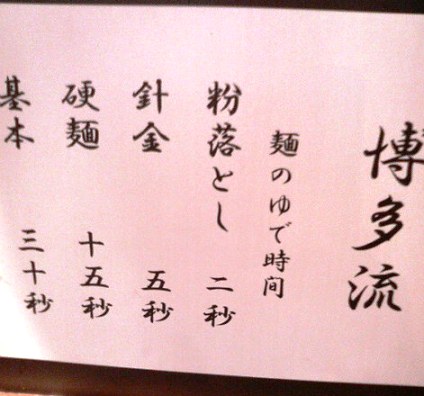 博多流
麺のゆで時間
粉落とし 二秒
針金 五秒
硬麺 十五秒
基本 三十秒